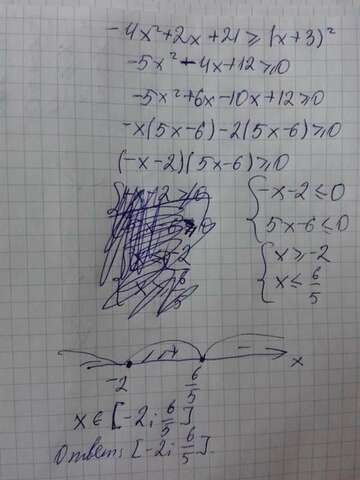 -4x²+2x+21≥(x+3)²
-5x²-4x+12≥0
-5x²+6x-10x+12≥0
-x(5x-6)-2(5x-6)≥0
(-x-2)(5x-6)≥0
{-x-2≤0
5x-6≤0
{x≥-2
x≤6/5
+ - x
-2 6/5
x∈[-2; 6/5]
Ответ: [-2; 6/5].